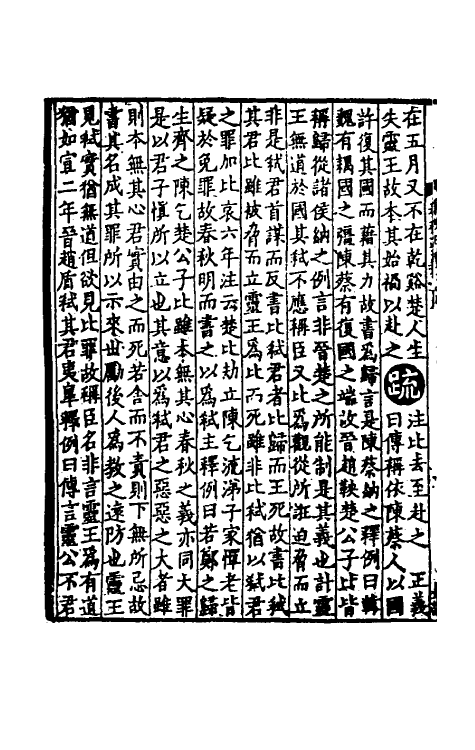 在五月又不在乾谿楚人生
失靈王故本其始禍以赴之
疏
注比去至赴之　正義
曰傳稱依陳蔡人以國
許復其國而藉其力故書爲歸言是陳蔡納之釋例曰韓
魏有耦國之彊陳蔡有復國之端故晉趙鞅楚公子比皆
稱歸從諸侯納之例言非晉楚之所能制是其義也計靈
王無道於國其弒不應稱臣又比爲觀從所誑迫脅而立
非是弒君首謀而反書比弒君者比歸而王死故書比弒
其君比雖被脅而立靈王爲比而死雖非比弒猶以弒君
之罪加比哀六年注云楚比劫立陳乞流涕子家憚老皆
疑於免罪故春秋明而書之以爲弒主釋例曰若鄭之歸
生齊之陳乞楚公子比雖本無其心春秋之義亦同大罪
是以君子慎所以立也其意以爲弒君之惡惡之大者雖
則本無其心君實由之而死若舍而不責則下無所忌故
書其名成其罪所以示來世勸後人爲教之遠防也靈王
見弒實猶無道但欲見比罪故稱臣名非言靈王爲有道
猶如宣二年晉趙盾弒其君夷皋釋例曰傳言靈公不君